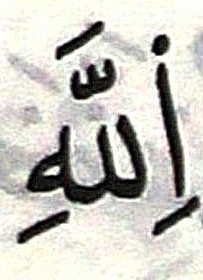 اِللَّهِ